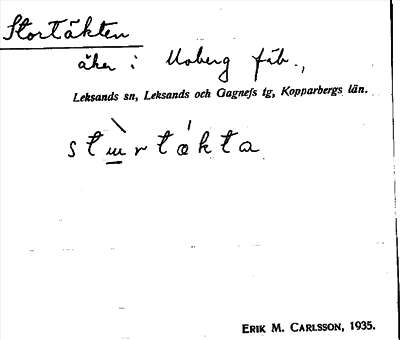 Stortäkten
åker i Moberg fäb.,
Leksands sn, Leksands och Gagnefs tg, Kopparbergs län.
stɯ̀rtákta
ERIK M. CARLSSON, 1935.